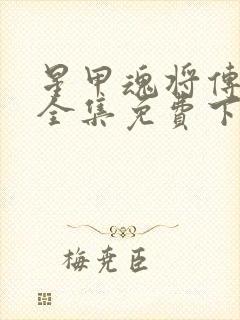 星甲魂将傳
全集免費下
梅堯臣